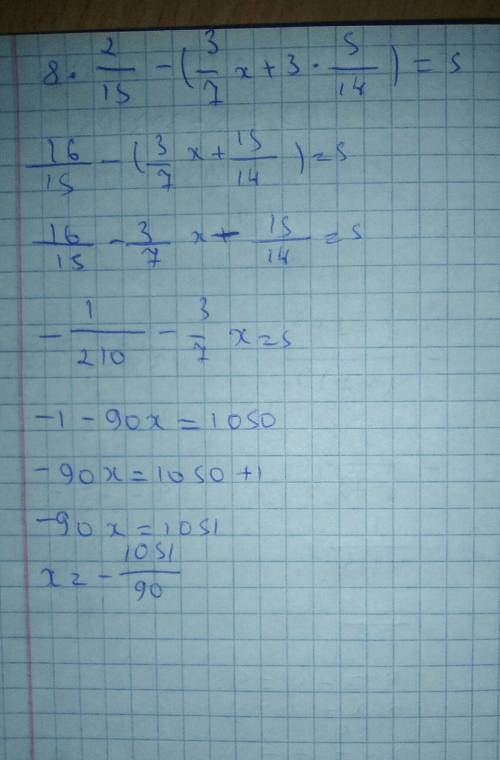 8 · 2/15 - (3/7 x + 3 · 5/14) = 5
16/15 - (3/7 x + 15/14) = 5
16/15 - 3/7 x - 15/14 = 5
- 1/210 - 3/7 x = 5
-1 - 90x = 1050
-90x = 1050 + 1
-90x = 1051
x = - 1051/90